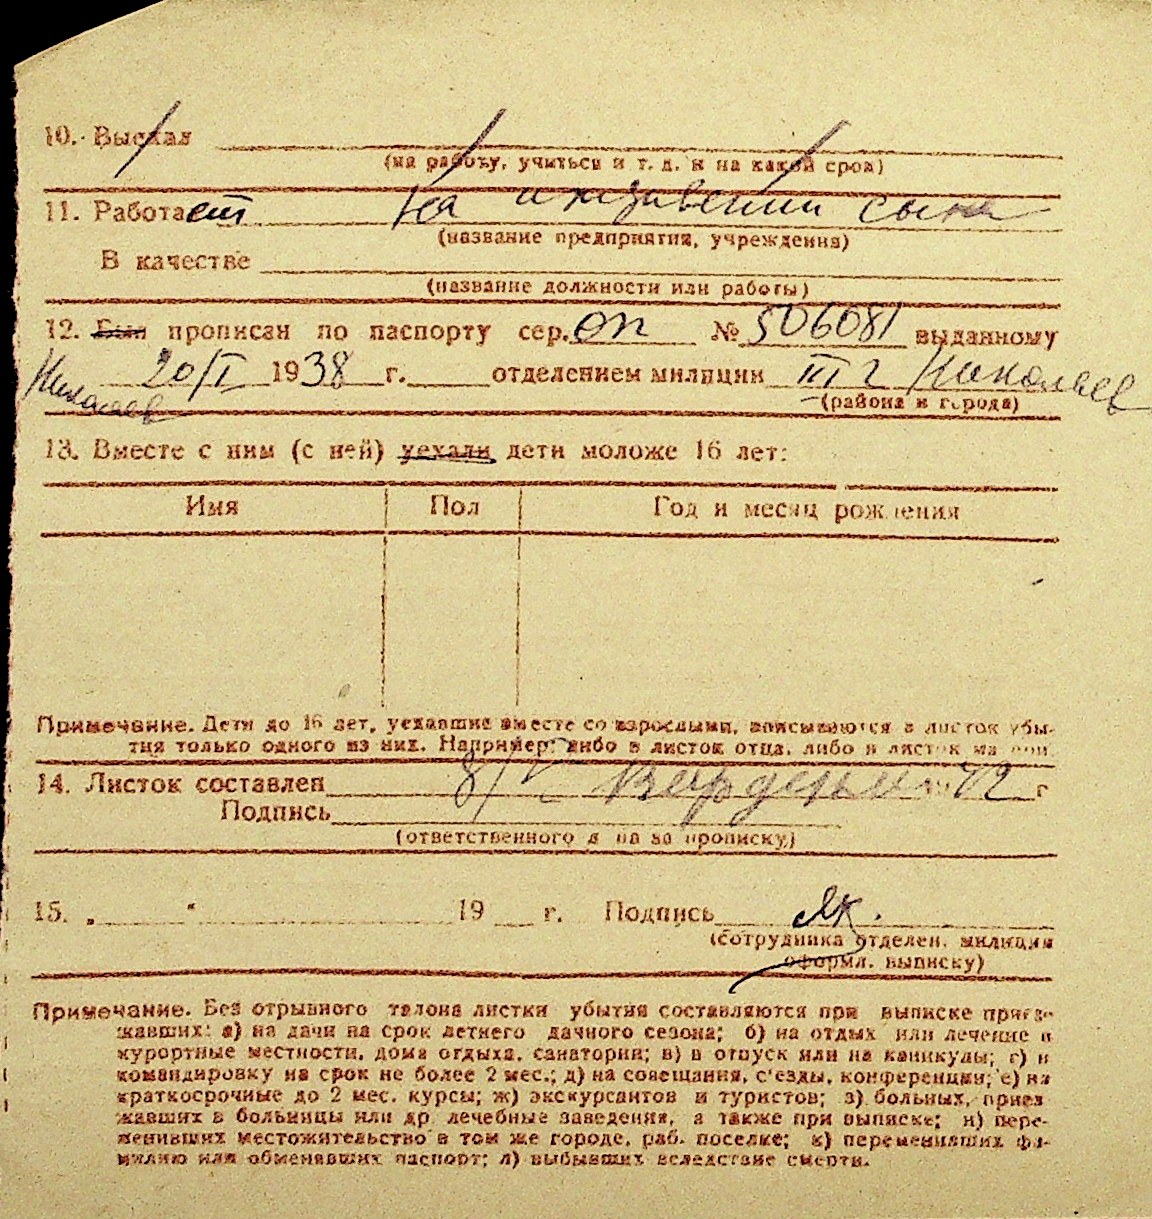 10. Выехал
(на работу, учиться и т. д. и на какой срок)
11. Работает на иждивении сына
(название предприятия, учреждения)
В качестве
(название должности или работы)
12. Был прописан по паспорту сер. ОП № 506081 выданному
Николаев 20/I 1938 г. отделением милиции III г Николаев
(района и города)
13. Вместе с ним (с ней) уехали дети моложе 16 лет:
Имя Пол Год и месяц рождения
Примечание. Дети до 16 лет, уехавшие вместе со взрослыми, вписываются в листок убы-
тия только одного из них. Например: либо в листок отца, либо в листок матери.
14. Листок составлен 8/V 42 г
Подпись
(ответственного лица за прописку)
15. „ “ 19 г. Подпись Як.
(сотрудника отделен. милиции
оформл. выписку)
Примечание. Без отрывного талона листки убытия составляются при выписке приез-
жавших: а) на дачи на срок летнего дачного сезона; б) на отдых или лечение в
курортные местности, дома отдыха, санатории; в) в отпуск или на каникулы; г) в
командировку на срок не более 2 мес.; д) на совещания, с'езды, конференции; е) на
краткосрочные до 2 мес. курсы; ж) экскурсантов и туристов; з) больных, приез
жавших в больницы или др. лечебные заведения, а также при выписке; и) пере-
менивших местожительство в том же городе, раб. поселке; к) переменивших фа-
милию или обменявших паспорт; л) выбывших вследствие смерти.